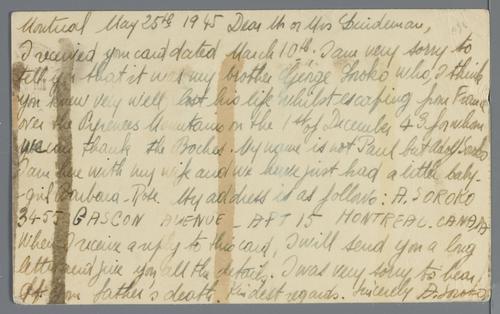 Montreal May 25th 1945 Dear Mr or Mrs Lindeman,
I received you card dated March 10th, I am very sorry to
tell you that it was my brother George Soroko who, I think
you knew very well, lost his life whilst escaping from France
over the Pyrenees Mountains on the 1st of December 43 for whom
we can thank the Boches. My name is not Paul but Soroko
I am here with my wife and we have just had a little baby-
girl Barbara-Rose. My address is as follows: A. SOROKO
3455 GASCON AVENUE - APT 15 MONTREAL. CANADA
When I receive a reply to this card, I will send you a long
letter and give you all the details. I was very sorry to hear
of your father's death. Kindest regards. Sincerely A. Soroko